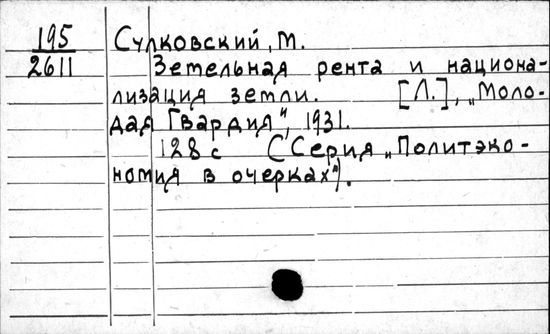 195 Сулковский, М.
2611 Земельная рента и национа-
лизация земли. [Л.], „Моло-
дая Гвардия", 1931.
128 с (Серия „Политэко-
номия в очерках").